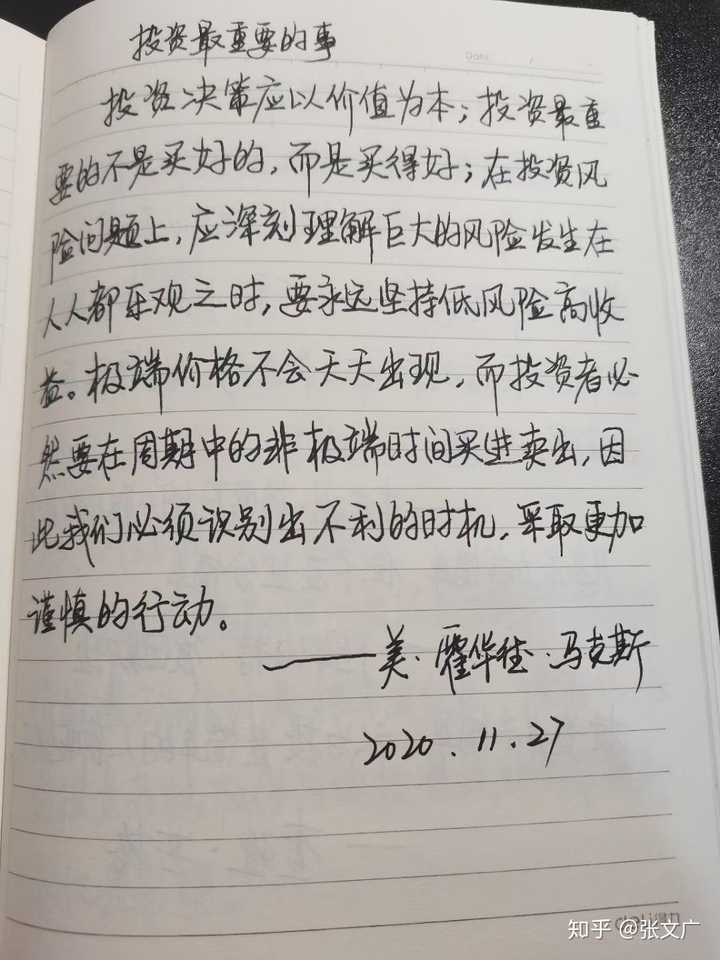 投资最重要的事
投资决策应以价值为本；投资最重
要的不是买好的，而是买得好；在投资风
险问题上，应深刻理解巨大的风险发生在
人人都乐观之时，要永远坚持低风险高收
益。极端价格不会天天出现，而投资者必
然要在周期中的非极端时间买进卖出，因
此我们必须识别出不利的时机，采取更加
谨慎的行动。
——美·霍华德·马克斯
2020.11.27
知乎 @张文广